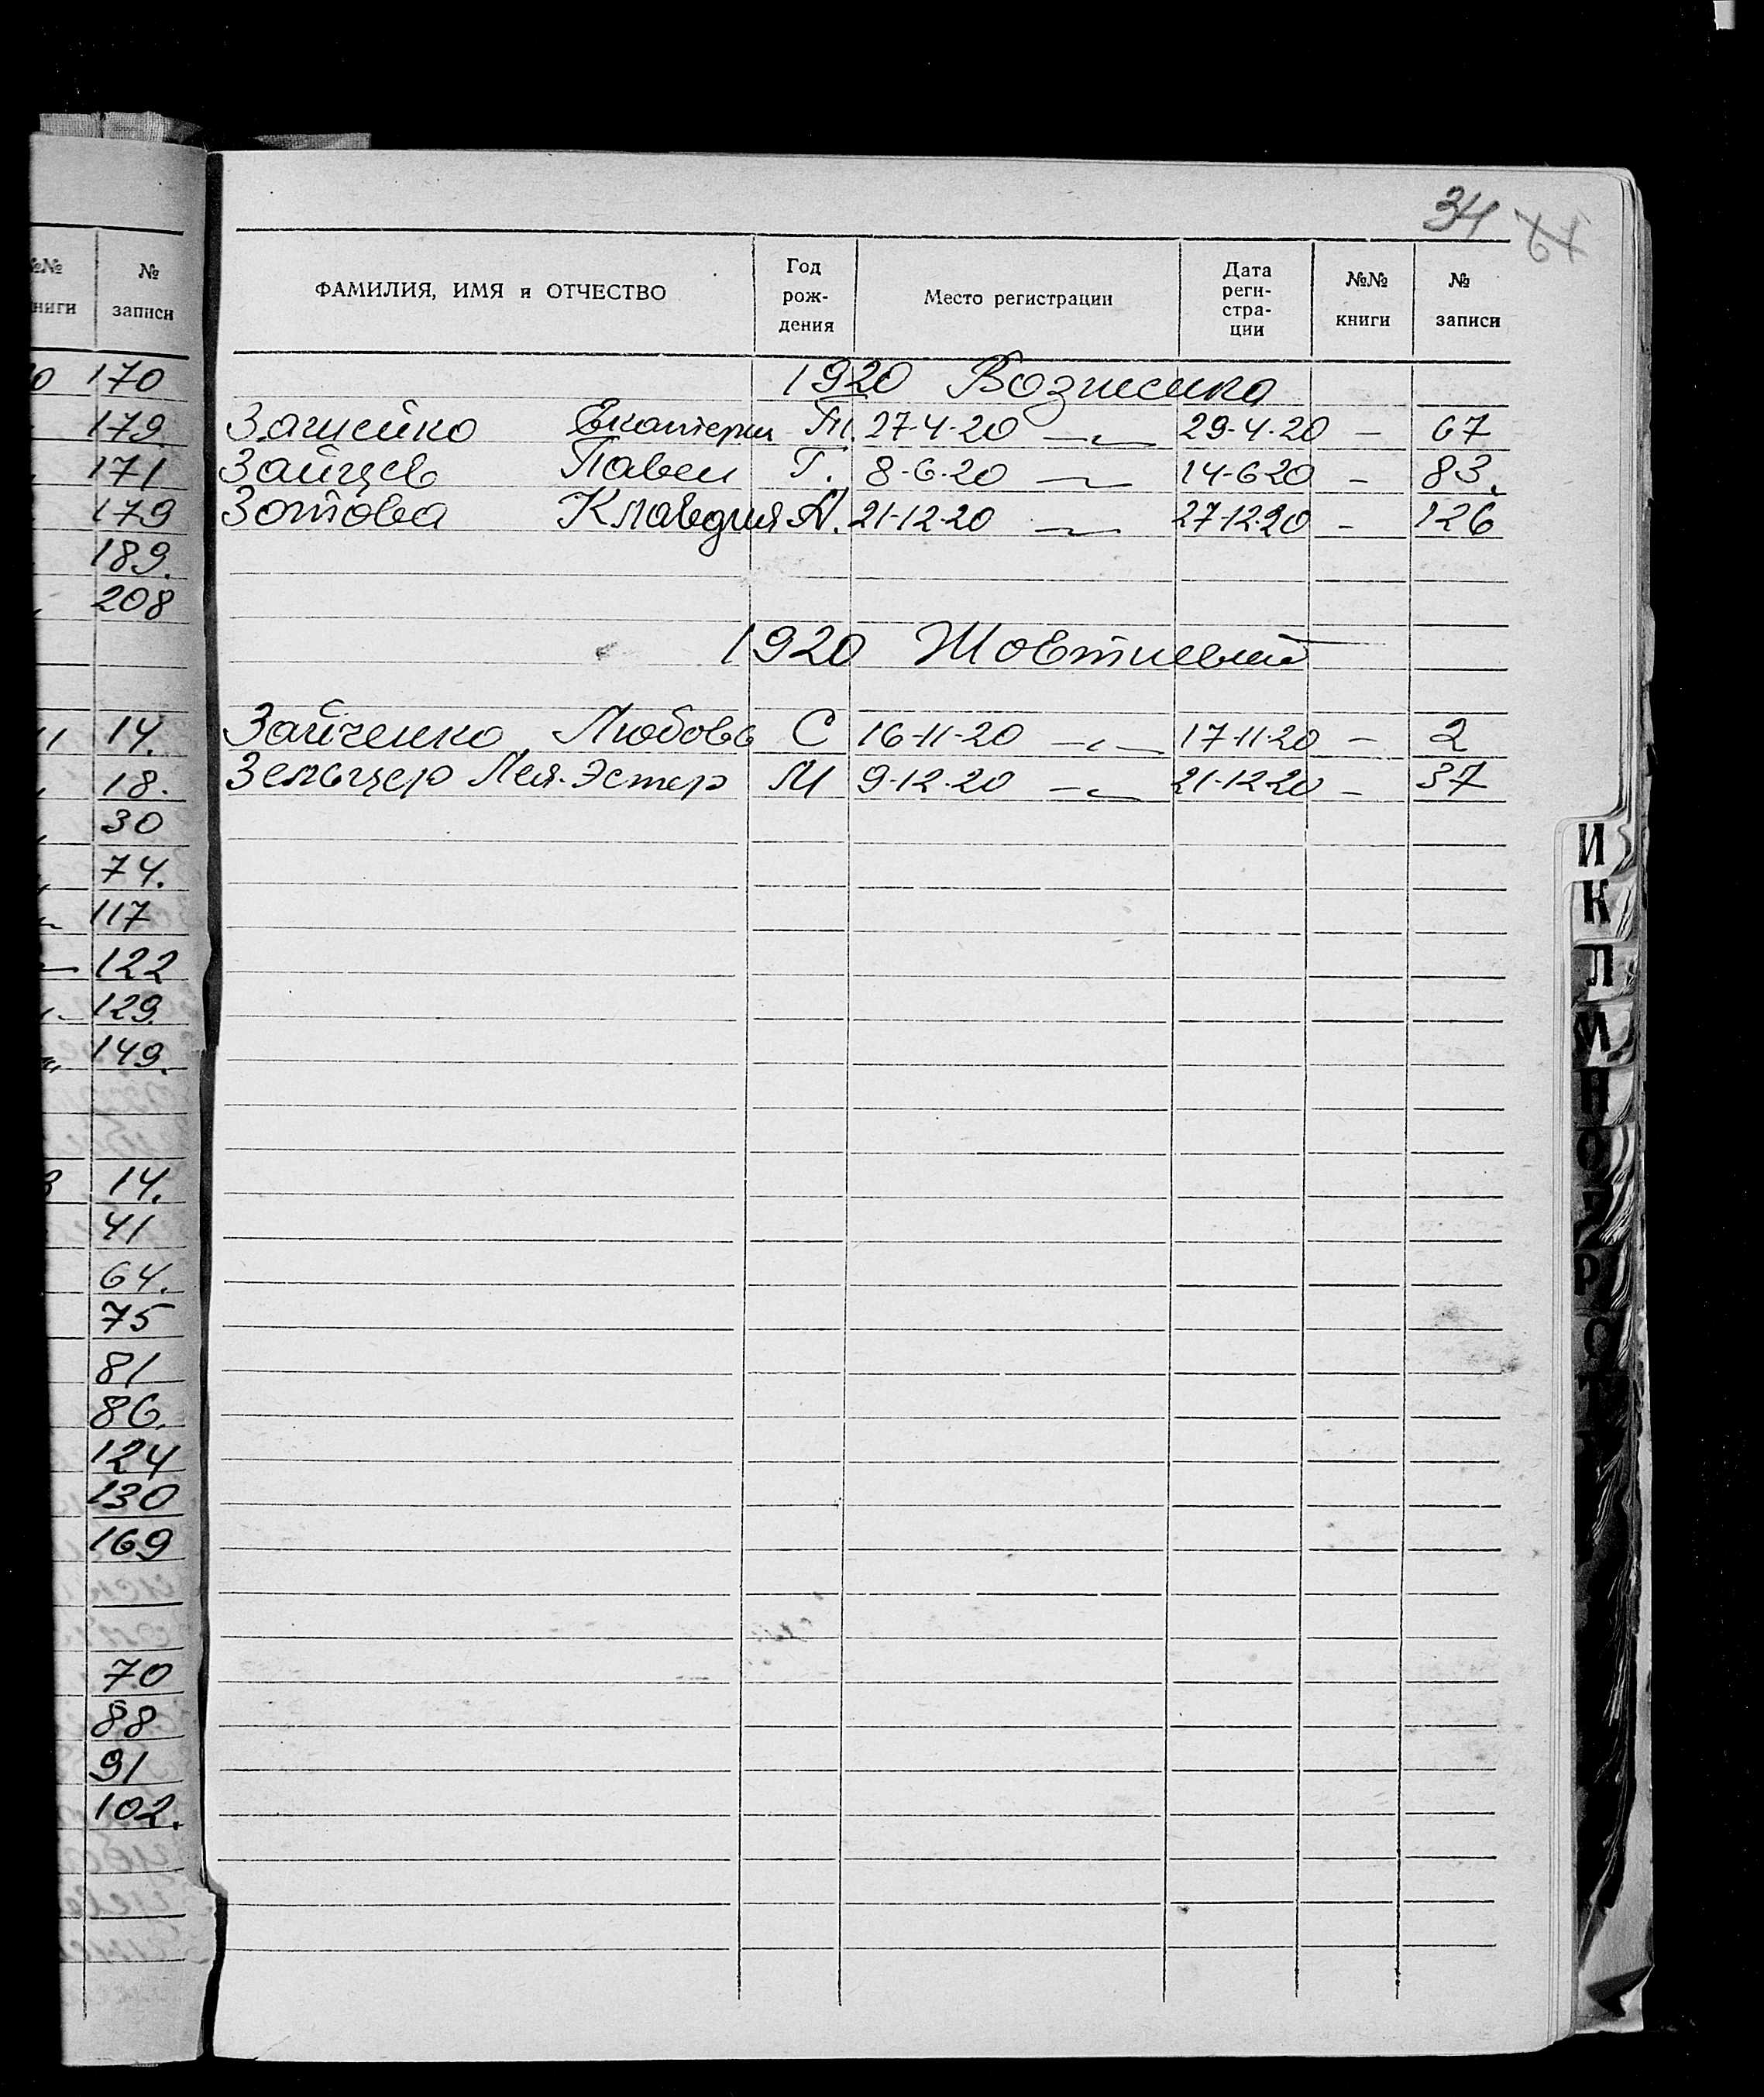 №№ книги
№ записи
170
179.
171
179
189.
208
14.
18.
30
74.
117
122
129.
149.
14.
41
64.
75
81
86.
124
130
169
70
88
91
102.
34
ФАМИЛИЯ, ИМЯ и ОТЧЕСТВО
Год рож-дения
Место регистрации
Дата реги-стра-ции
№№ книги
№ записи
1920 Вознесенка
Екатерин М. 27-4-20 —〃— 29-4-20 — 67
Зайцев Павел Г. 8-6-20 —〃— 14-6-20 — 83.
Зотова Клавдия А. 21-12-20 —〃— 27-12-20 — 126
1920 Жовтневый
Зайченко Любовь С 16-11-20 —〃— 17-11-20 — 2
Зельцер Лея-Эстер М 9-12-20 —〃— 21-12-20 — 37
И
К
Л
М
Н
О
Р
С
Т